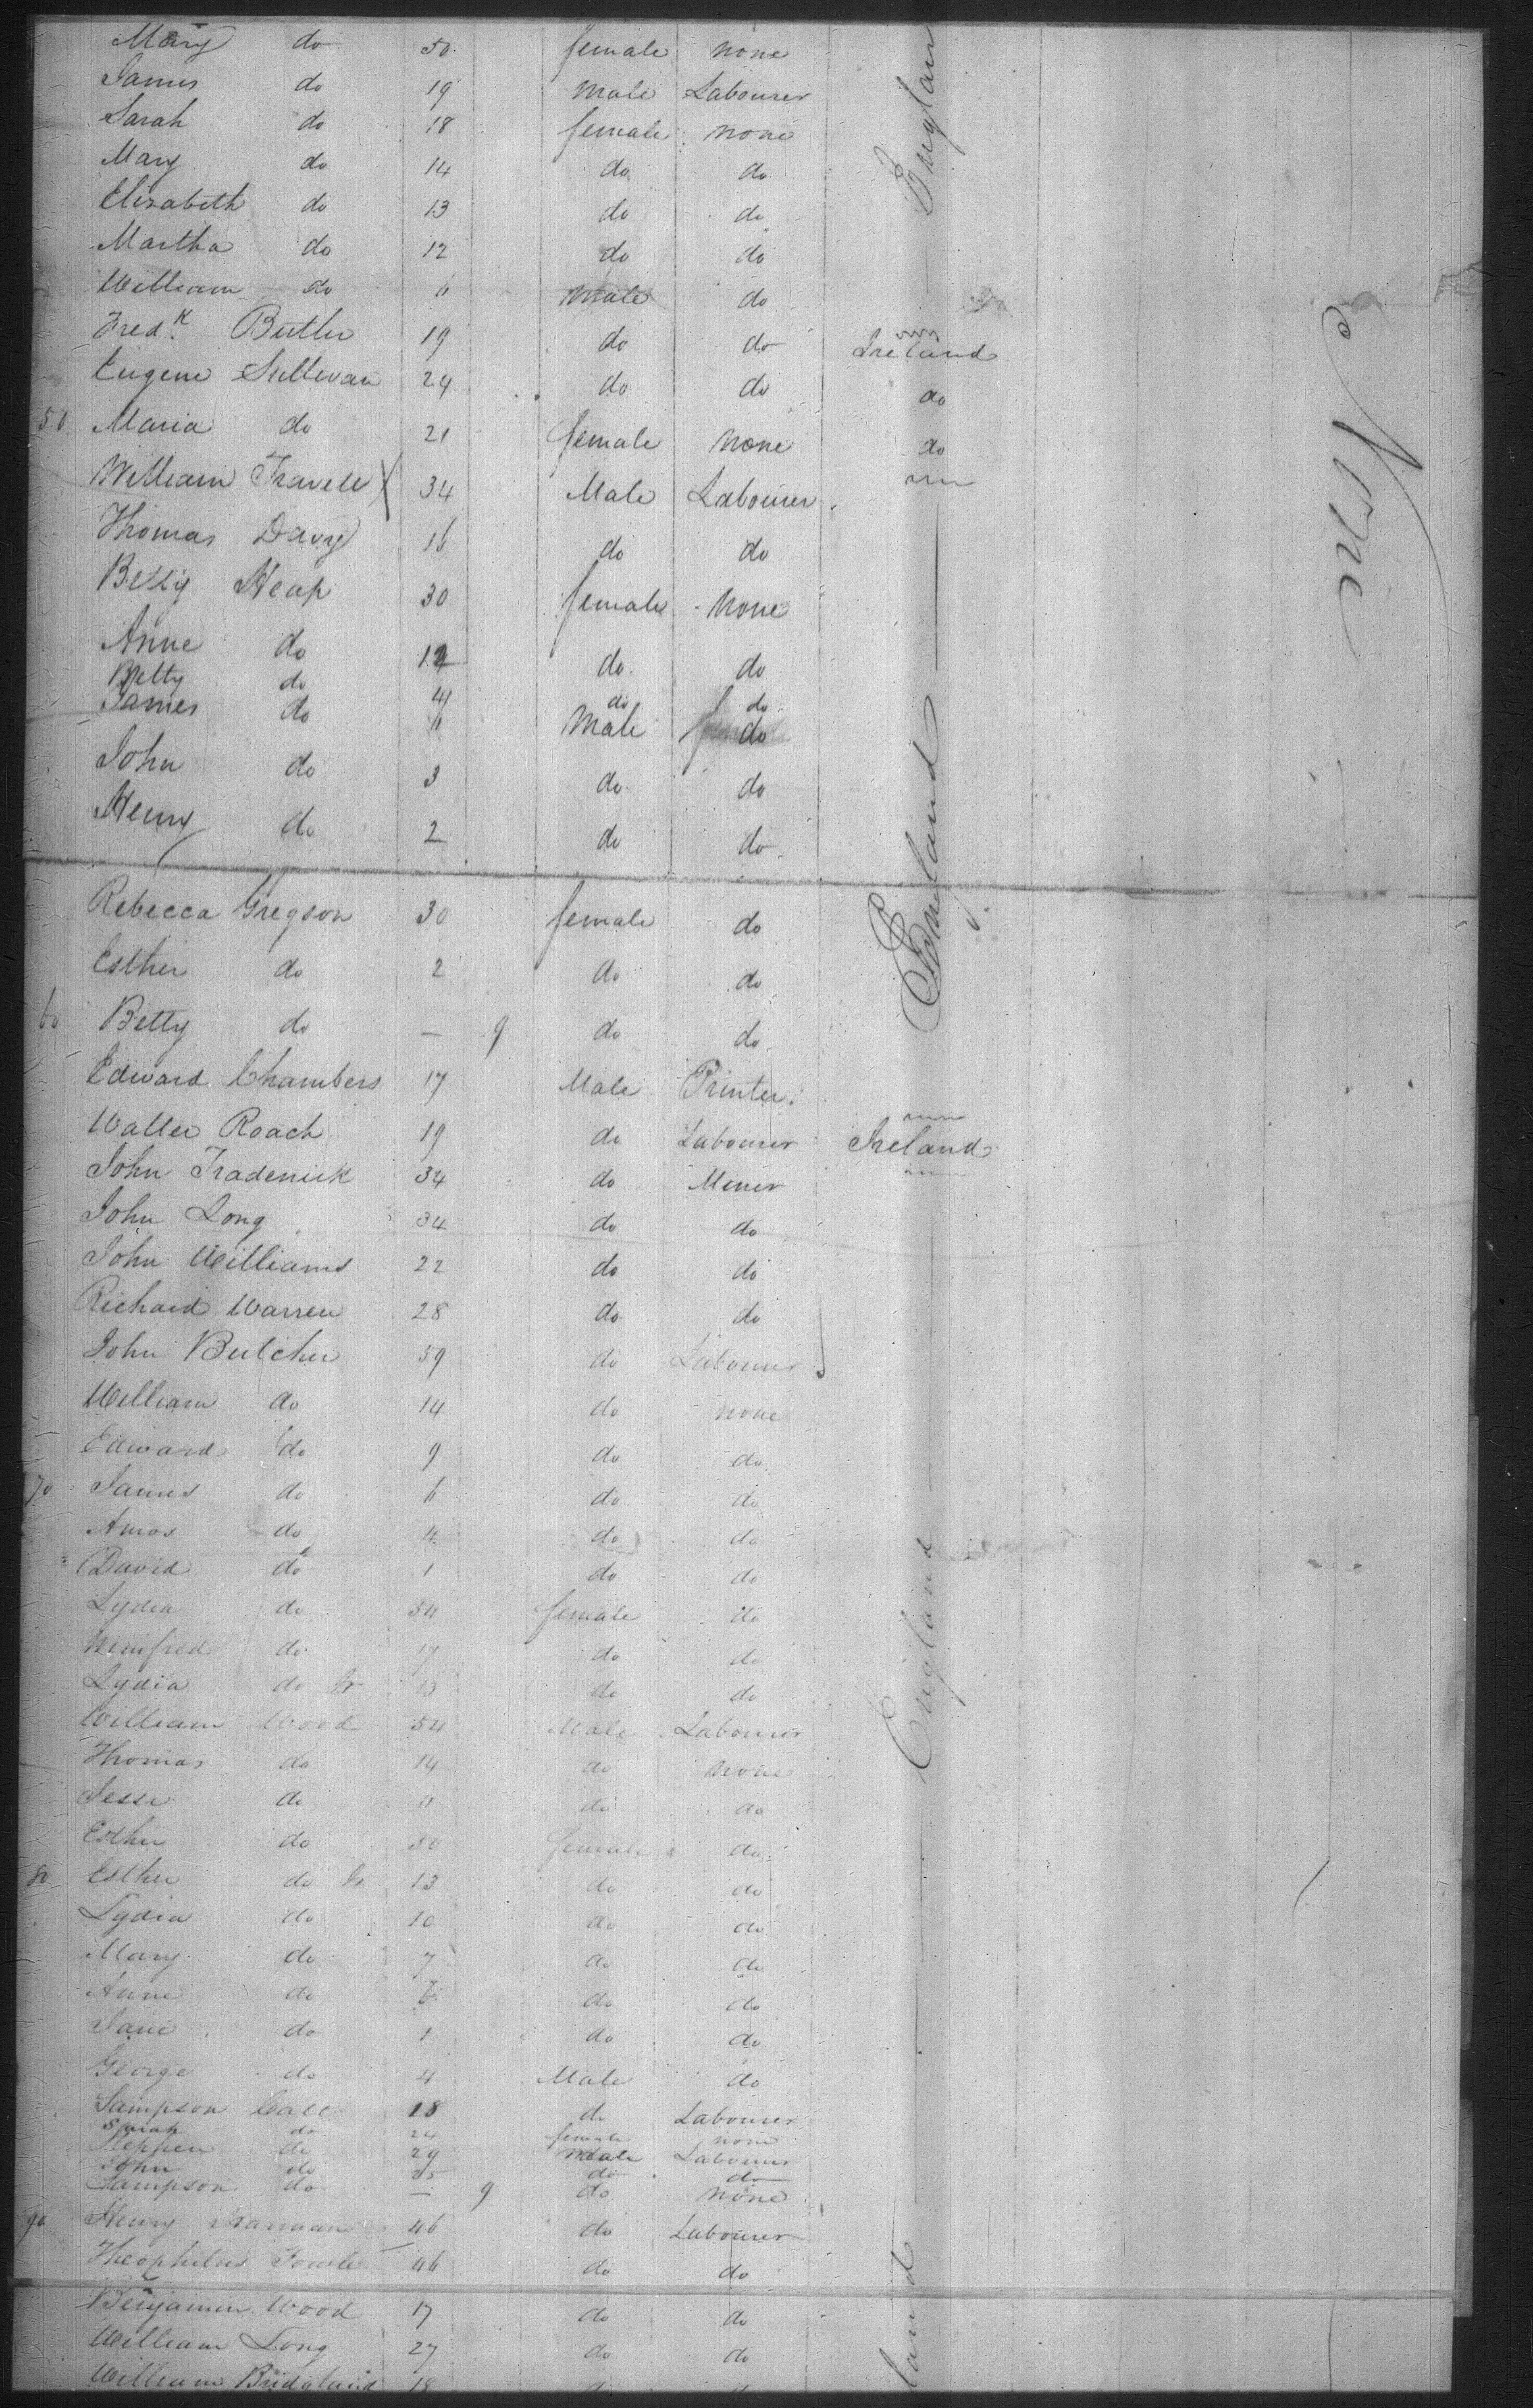 Mary do 50 female none
James do 19 Male Labourer
Sarah do 18 female none
Mary do 14 do do
Elizabeth do 13 do do
Martha do 12 do do
William do 6 Male do
Fredk. Butler 19 do do Ireland
Eugene Sullivan 24 do do do
50 Maria do 21 female none do
William Travell X 34 Male Labourer
Thomas Davy 16 do do
Betty Heap 30 female none
Anne do 12 do do
Betty do 4 do do
James do 6 Male do
John do 3 do do
Henry do 2 do do
Rebecca Gregson 30 female do
Esther do 2 do do
60 Betty do — 9 do do
Edward Chambers 17 Male Printer
Walter Roach 19 do Labourer Ireland
John Tradenick 34 do Miner
John Long 34 do do
John Williams 22 do do
Richard Warren 28 do do
John Butcher 39 do Labourer
William do 14 do none
Edward do 9 do do
70 James do 6 do do
Amos do 4 do do
David do 1 do do
Lydia do 34 female do
Winifred do 17 do do
Lydia do Jr 13 do do
William Wood 54 Male Labourer
Thomas do 14 do none
Jesse do 11 do do
Esther do 50 female do
80 Esther do Jr 13 do do
Lydia do 10 do do
Mary do 7 do do
Anne do do do
Jane do 1 do do
George do 4 Male do
Sampson Call 28 do Labourer
Sarah do 24 female none
Stephen do 29 Male Labourer
John do 25 do do
Sampson do — 9 do none
90 Henry 46 do Labourer
Theophilus Fowle 46 do do
Benjamin Wood 17 do do
William Long 27 do do
William Bridgland 18
Englan
England
England
land
New